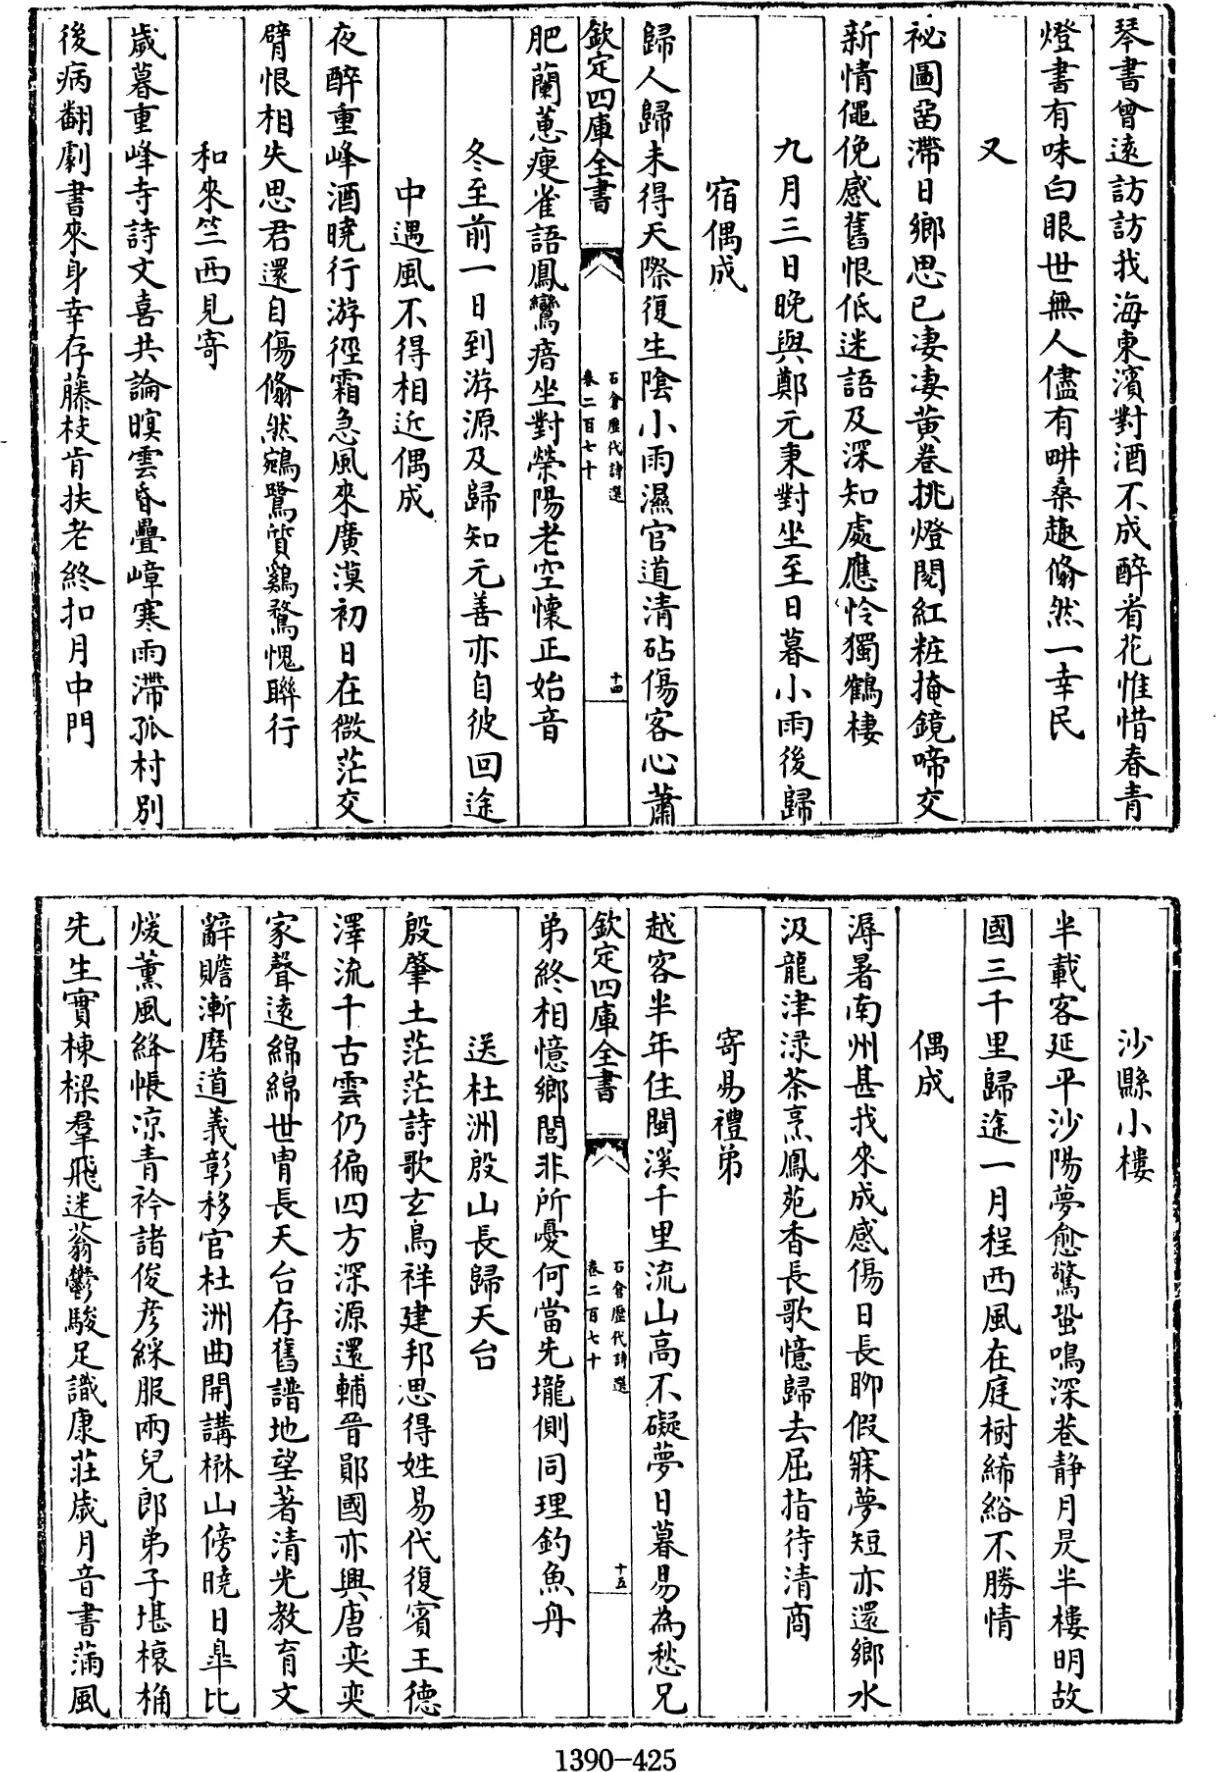 琴書曾遠訪訪我海東濱對酒不成醉看花惟惜春青
燈書有味白眼世無人儘有畊桑趣翛然一幸民
又
祕圖畱滯日鄉思已凄凄黄卷挑燈閱紅粧掩鏡啼交
新情僶俛感舊恨低迷語及深知處應怜獨鶴棲
九月三日晚與鄭元秉對坐至日暮小雨後歸
宿偶成
歸人歸未得天際復生陰小雨濕官道清砧傷客心蕭
欽定四庫全書
石倉歷代詩選
卷二百七十
十四
肥蘭蕙瘦雀語鳳鸞瘖坐對滎陽老空懷正始音
冬至前一日到游源及歸知元善亦自彼回途
中遇風不得相近偶成
夜醉重峰酒曉行游徑霜急風來廣漠初日在微茫交
臂恨相失思君還自傷翛然鵷鷺質鷄鶩愧聯行
和來竺西見寄
歲暮重峰寺詩文喜共論暝雲昏疊嶂寒雨滯孤村別
後病翻劇書來身幸存藤枝肯扶老終扣月中門
沙縣小樓
半載客延平沙陽夢愈驚蛩鳴深巷静月晃半樓明故
國三千里歸途一月程西風在庭樹絺綌不勝情
偶成
溽暑南州甚我來成感傷日長聊假寐夢短亦還鄉水
汲龍津渌茶烹鳳苑香長歌憶歸去屈指待清商
寄易禮弟
越客半年住閩溪千里流山高不礙夢日暮易為愁兄
欽定四庫全書
石倉歷代詩選
卷二百七十
十五
弟終相憶鄉閭非所憂何當先壠側同理釣魚舟
送杜洲殷山長歸天台
殷肇土茫茫詩歌玄鳥祥建邦思得姓易代復賓王德
澤流千古雲仍徧四方深源還輔晉鄖國亦興唐奕奕
家聲遠綿綿世胄長天台存舊譜地望著清光教育文
辭贍漸磨道義彰移官杜洲曲開講楙山傍曉日臯比
煖薰風絳帳涼青衿諸俊彥綵服兩兒郎弟子堪榱桷
先生實棟樑羣飛迷蓊鬱駿足識康莊歲月音書滿風
1390-425